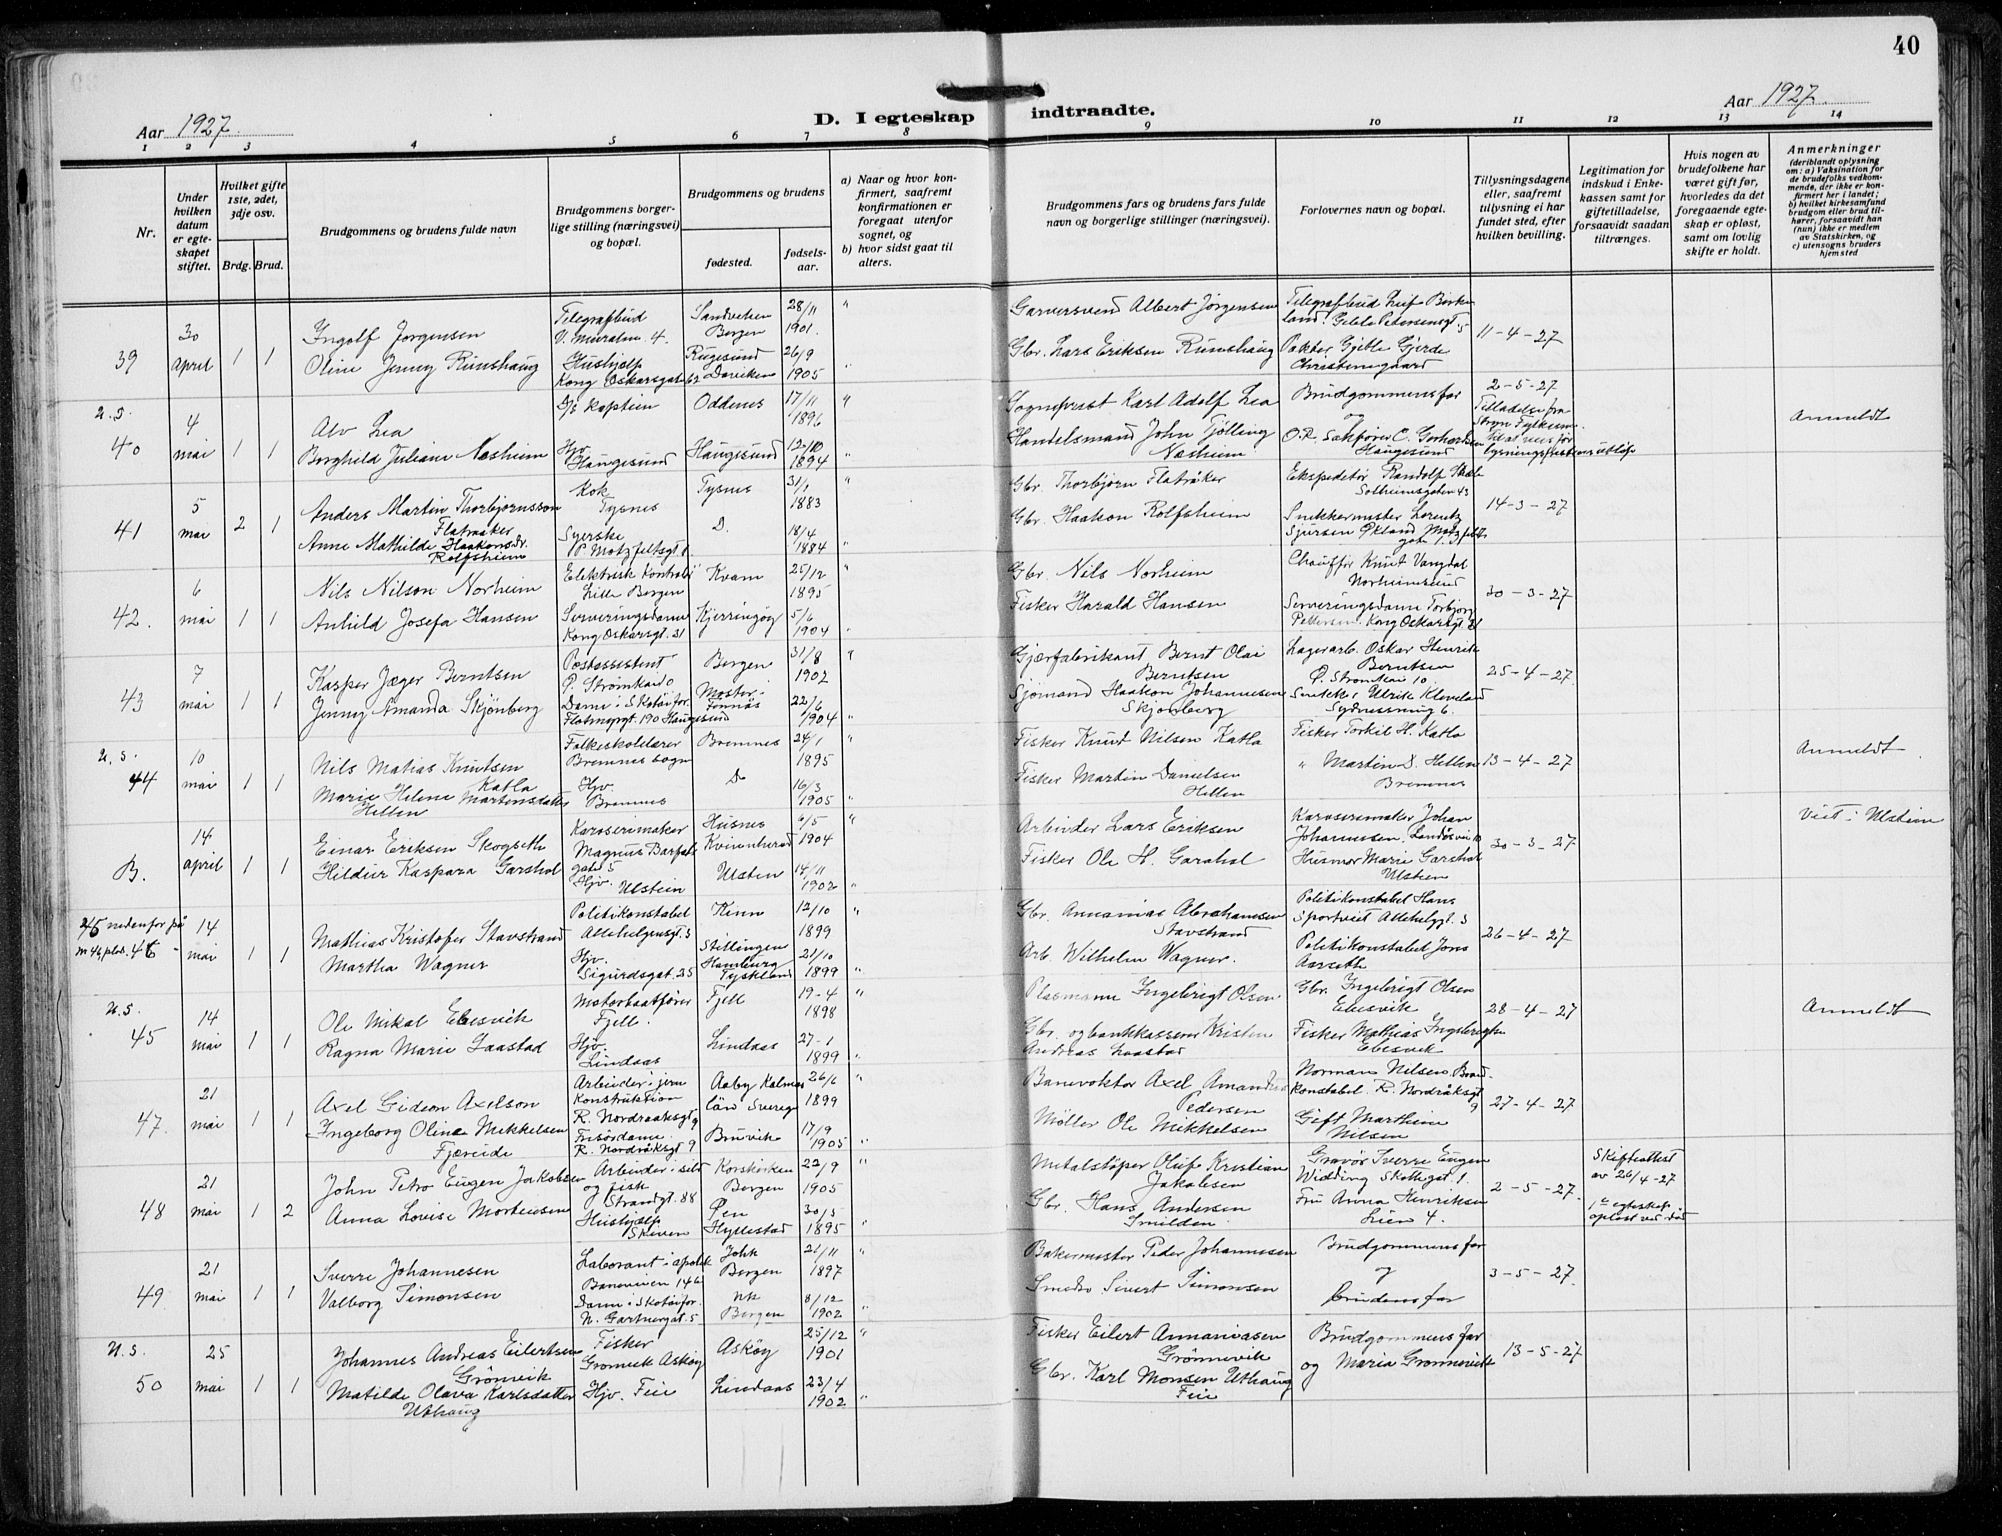 40
Aar 1927.
D. I egteskap indtraadte.
Aar 1927.
1 2 3 4 5 6 7 8 9 10 11 12 13 14
Nr.
Under hvilken datum er egteskapet stiftet.
Hvilket gifte 1ste, 2det, 3dje osv.
Brdg. Brud.
Brudgommens og brudens fulde navn
Brudgommens borgerlige stilling (næringsvei) og bopæl.
Brudgommens og brudens
fødested.
fødselsaar.
a) Naar og hvor konfirmert, saafremt konfirmationen er foregaat utenfor sognet, og
b) hvor sidst gaat til alters.
Brudgommens fars og brudens fars fulde navn og borgerlige stillinger (næringsvei).
Forlovernes navn og bopæl.
Tillysningsdagene eller, saafremt tillysning ei har fundet sted, efter hvilken bevilling.
Legitimation for indskud i Enkekassen samt for giftetilladelse, forsaavidt saadan tiltrænges.
Hvis nogen av brudefolkene har været gift før, hvorledes da det foregaaende egteskap er opløst, samt om lovlig skifte er holdt.
Anmerkninger
(deriblandt oplysning om: a) Vaksination for de brudefolks vedkommende, der ikke er konfirmert her i landet; b) hvilket kirkesamfund brudgom eller brud tilhører, forsaavidt han (hun) ikke er medlem av Statskirken, og c) utensogns bruders hjemsted
39 30 april 1 1
Ingolf Jørgensen
Oline Jenny Runshaug
Telegrafbud
V. Muralm. 4.
Hushjælp
Kong Oskarsgate 62
Sandviken Bergen
Rugesund Daviken
28/11 1901.
26/9 1905
Garversvend Albert Jørgensen
Gbr. Lars Eriksen Runshaug
Telegrafbud Leif Birkeland. Geble Pedersensgt 5
Pakker Gjeble Gjerde
Christinegaard
11-4-27
u.s.
40 4 mai 1 1
Alv Lea
Borghild Juliane Næsheim
D/s kaptein
Hjv. Haugesund
Oddenes
Haugesund
17/11 1896
12/10 1894
Sogneprest Karl Adolf Lea
Handelsmand John Tjølling Næsheim
Brudgommens far
og
O.R. Sakfører C. Gerhardsen
Haugesund
2-5-27
Tilladelse fra
Anmeldt
41 5 mai 2 1
Anders Martin Thorbjørnsson Flatråker
Anne Mathilde Haakonsdr. Rolfsheim
Kok
Tysnes
Syerske
P. Motzfeltsgt. 1
Tysnes
D.
31/1 1883
18/4 1884
Gbr. Thorbjørn Flatråker
Gbr. Haakon Rolfsheim
Ekspeditør Randolf Skåle
Solheimsgaten 43
Snekkermester Lorentz
Sjursen Økland Motzfeldts gate 1.
14-3-27
42. 6 mai 1 1
Nils Nilson Norheim
Anhild Josefa Hansen
Elektrisk kontrolør
Lille Bergen
Serveringsdame
Kong Oskarsgt. 31
Kvam
Kjerringøy
25/12 1895
5/6 1904
Gbr. Nils Norheim
Fisker Harald Hansen
Chauffør Knut Vangdal
Norheimsund
Serveringsdame Torbjørg
Pettersen. Kong Oskarsgt. 31
30-3-27
43 7 mai 1 1
Kasper Jæger Berntsen
Jenny Amanda Skjønberg
Postassistent
Ø. Strømkai 10
Dame i Skotøifor.
Flotmyrgt. 190 Haugesund
Bergen
Moster
31/8 1902
22/6 1904
Gjærfabrikant Bernt Olai Berntsen
Sjømand Haakon Johannesen Skjønberg
Lagerarb. Oskar Henrik Berntsen
Ø. Strømkai 10.
Snekker Ulrik Kleveland
Sydnessmug 6.
25-4-27
u.s.
44 10 mai 1 1
Nils Matias Knutsen Katla
Marie Helene Martinsdatter Hellen
Folkeskolelærer
Bremnes sogn
Hjv.
Bremnes
Bremnes
D
24/1 1895
16/3 1905
Fisker Knud Nilsen Katla
Fisker Martin Danielsen Hellen
Fisker Torkil H. Katla
" Martin D. Hellen
Bremnes
13-4-27
Anmeldt
B. 14 april 1 1
Einar Eriksen Skogseth
Hildur Kaspara Garshol
Karosserimaker
Magnus Barfots gate 5
Hjv. Ulstein
Husnes Kvinnherad
Ulsten
6/5 1904
14/11 1902
Arbeider Lars Eriksen
Fisker Ole H. Garshol
Karosserimaker Johan
Johannessen. Landåsvei 10
Husmor Marie Garshol
Ulsten
30-3-27
Viet i Ulstein
45 nedenfor på
46 14 mai 1 1
Mathias Kristofer Stavstrand
Martha Wagner
Politikonstabel
Allehelgensgt. 3
Hjv.
Sigurdsgat. 25
Kinn
Stillingen Hamburg Tyskland
12/10 1899
21/10 1899
Gbr. Annanias Abrahamsen Stavstrand
Arb. Wilhelm Wagner.
Politikonstabel Hans
Sportveit Allehelgt. 3
Politikonstabel Jens
Aarseth
26-4-27
u.s.
45 14 mai 1 1
Ole Mikal Ebbesvik
Ragna Marie Laastad
Motorbaatfører
Fjell.
Hjv.
Lindaas
Fjell
Lindaas
19-4 1898
27-1 1899
Plasmann Ingebrigt Olsen
Gbr. og bankkasserer Kristen Andreas Laastad
Gbr. Ingebrigt Olsen
Ebbesvik
Fisker Mathias Ingebrigtsen
Ebbesvik
28-4-27
Anmeldt
47. 21 mai 1 1
Axel Gideon Axelson
Ingeborg Oline Mikkelsen Fjæreide
Arbeider i jernkonstruktion
R. Nordraaksgt 9
Frisørdame
R. Nordråksgt 9
Aaby Kalmar län Sverige
Bruvik
26/6 1899
17/9 1905
Banevokter Axel Amandus Pedersen
Møller Ole Mikkelsen
Norman Nilsen. Brandkonstabel. R. Nordråksgt 9
Gift Marthine Nilsen
27-4-27
48 21 mai 1 2
John Petro Eugen Jakobsen
Anna Lovise Mortensen
Arbeider i sild og fisk
Strandgt. 88
Hushjælp
Skiven
Korskirken Bergen
Øen Hyllestad
22/9 1905
30/3 1895
Metalstøper Oluf Kristian Jakobsen
Gbr. Hans Andersen Smilden.
Gravør Sverre Eugen
Widding Skottegat. 1.
Fru Anna Henriksen
Lien 4.
2-5-27.
Skifteattest av 26/4-27
1ste egteskap opløst ved død
49 21 mai 1 1
Sverre Johannesen
Valborg Simonsen
Laborant i apotek
Baneveien 14b
Dame i Skotøifor.
N. Gartnergat. 5
Johk Bergen
Nk Bergen
21/11 1897
8/12 1902
Bakermester Peder Johannesen
Smed Sivert Simonsen
Brudgommens far
og
brudens far
3-5-27.
u.s.
50 25 mai 1 1
Johannes Andreas Eilertsen Grønevik
Matilde Olava Karlsdatter Uthaug
Fisker
Grønevik Askøy
Hjv. Feie
Askøy
Lindaas
25/12 1901
23/4 1902
Fisker Eilert Annaniasen Grønnevik
Gbr. Karl Monsen Uthaug Feie
Brudgommens far
og Maria Grønnevik
13-5-27